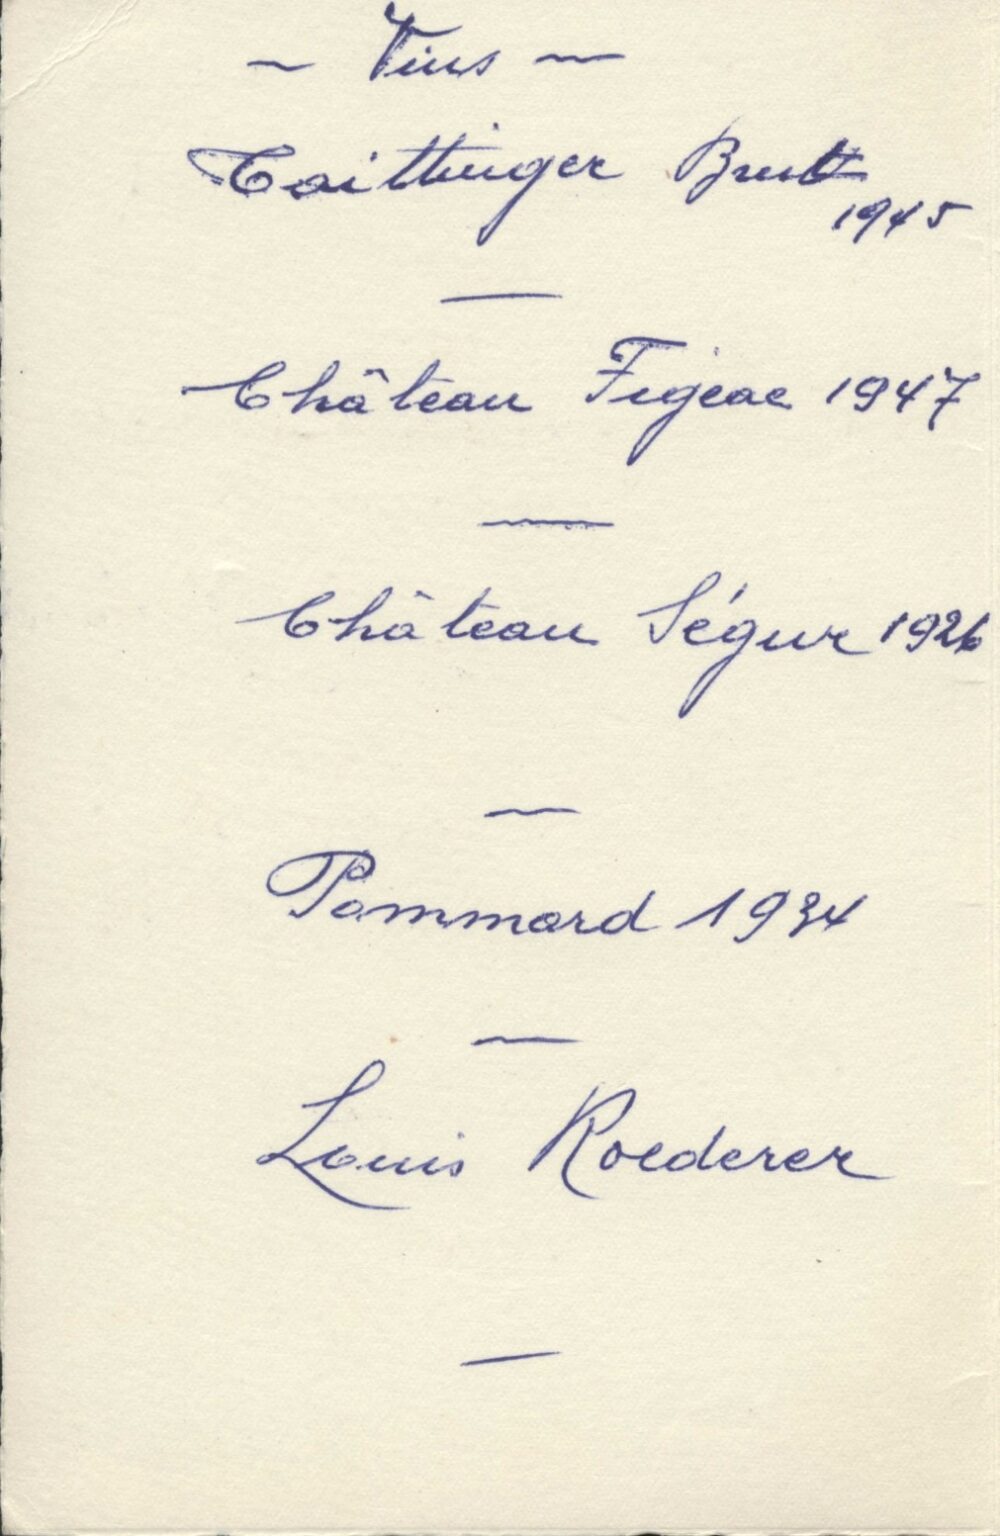 ~ Vins ~
Taittinger Brut
1945
Château Figeac 1947
Château Ségur 1926
Pommard 1934
Louis Roederer